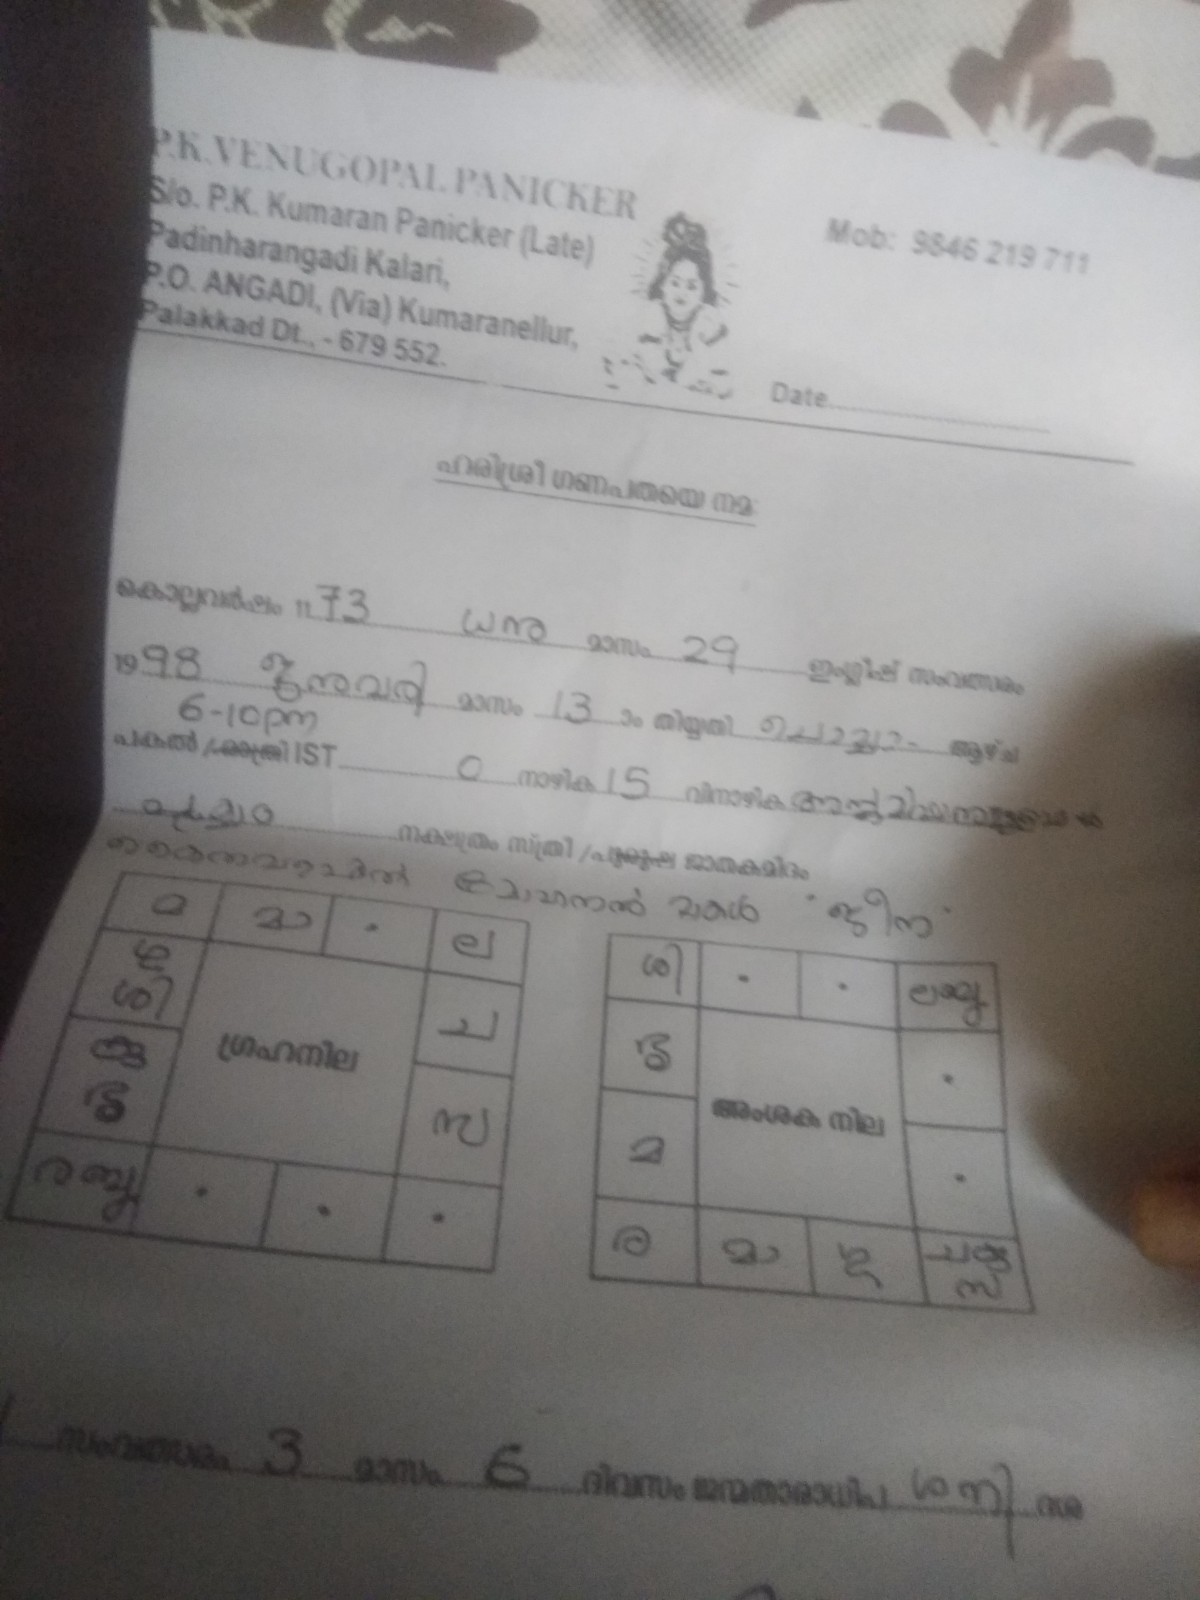 P.K. VENUGOPAL PANICKER
S/o. P.K. Kumaran Panicker (Late)
Padinharangadi Kalari,
P.O. ANGADI, (Via) Kumaranellur,
Palakkad Dt., - 679 552.
Mob: 9846 219 711
Date
ഹരിഃശ്രീ ഗണപതയെ നമഃ
കൊല്ലവർഷം 11 73 ധനു മാസം 29 ഇംഗ്ലീഷ് സംവത്സരം
1998 ജനുവരി മാസം 13 ാം തിയ്യതി ചൊവ്വാ ആഴ്ച
6-10pm
പകൽ / രാത്രി IST 0 നാഴിക 15 വിനാഴിക
പൂയ്യം നക്ഷത്രം സ്ത്രീ / പുരുഷ ജാതകമിദം
മോഹനൻ മകൾ "ജീന"
മ മാ ല
ശു ശി ച
ഗ്രഹനില
കു ഗു സ
ര ബു
ശി ല
ഗു
അംശക നില
മ
ര മാ ശു ച കു സ
സംവത്സരം 3 മാസം 6 ദിവസം ജന്മതാരാധിപ ശനി ദശ